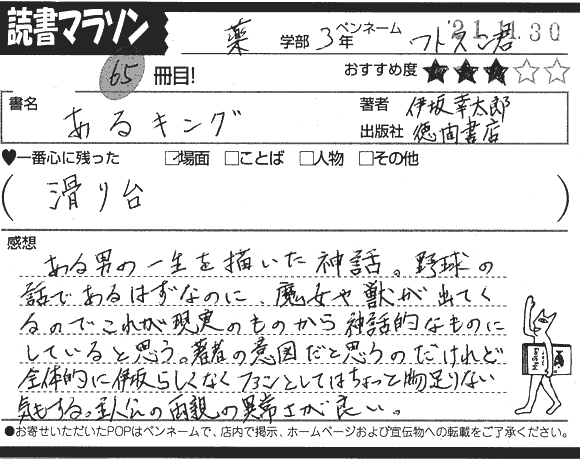 読書マラソン
薬 学部 3年 ペンネーム フトスン君
'21.11.30
65 冊目! おすすめ度 ★★★☆☆
書名 あるキング
著者 伊坂幸太郎
出版社 徳間書店
♥一番心に残った ☑場面 □ことば □人物 □その他
(滑り台)
感想
ある男の一生を描いた神話。野球の
話であるはずなのに、魔女や獣が出てく
るのでこれが現実のものから神話的なものに
していると思う。著者の意図だと思うのだけれど
全体的に伊坂らしくなくファンとしてはちょっと物足りない
気もする。主人公の両親の異常さが良い。
●お寄せいただいたPOPはペンネームで、店内で掲示、ホームページおよび宣伝物への転載をご了承ください。